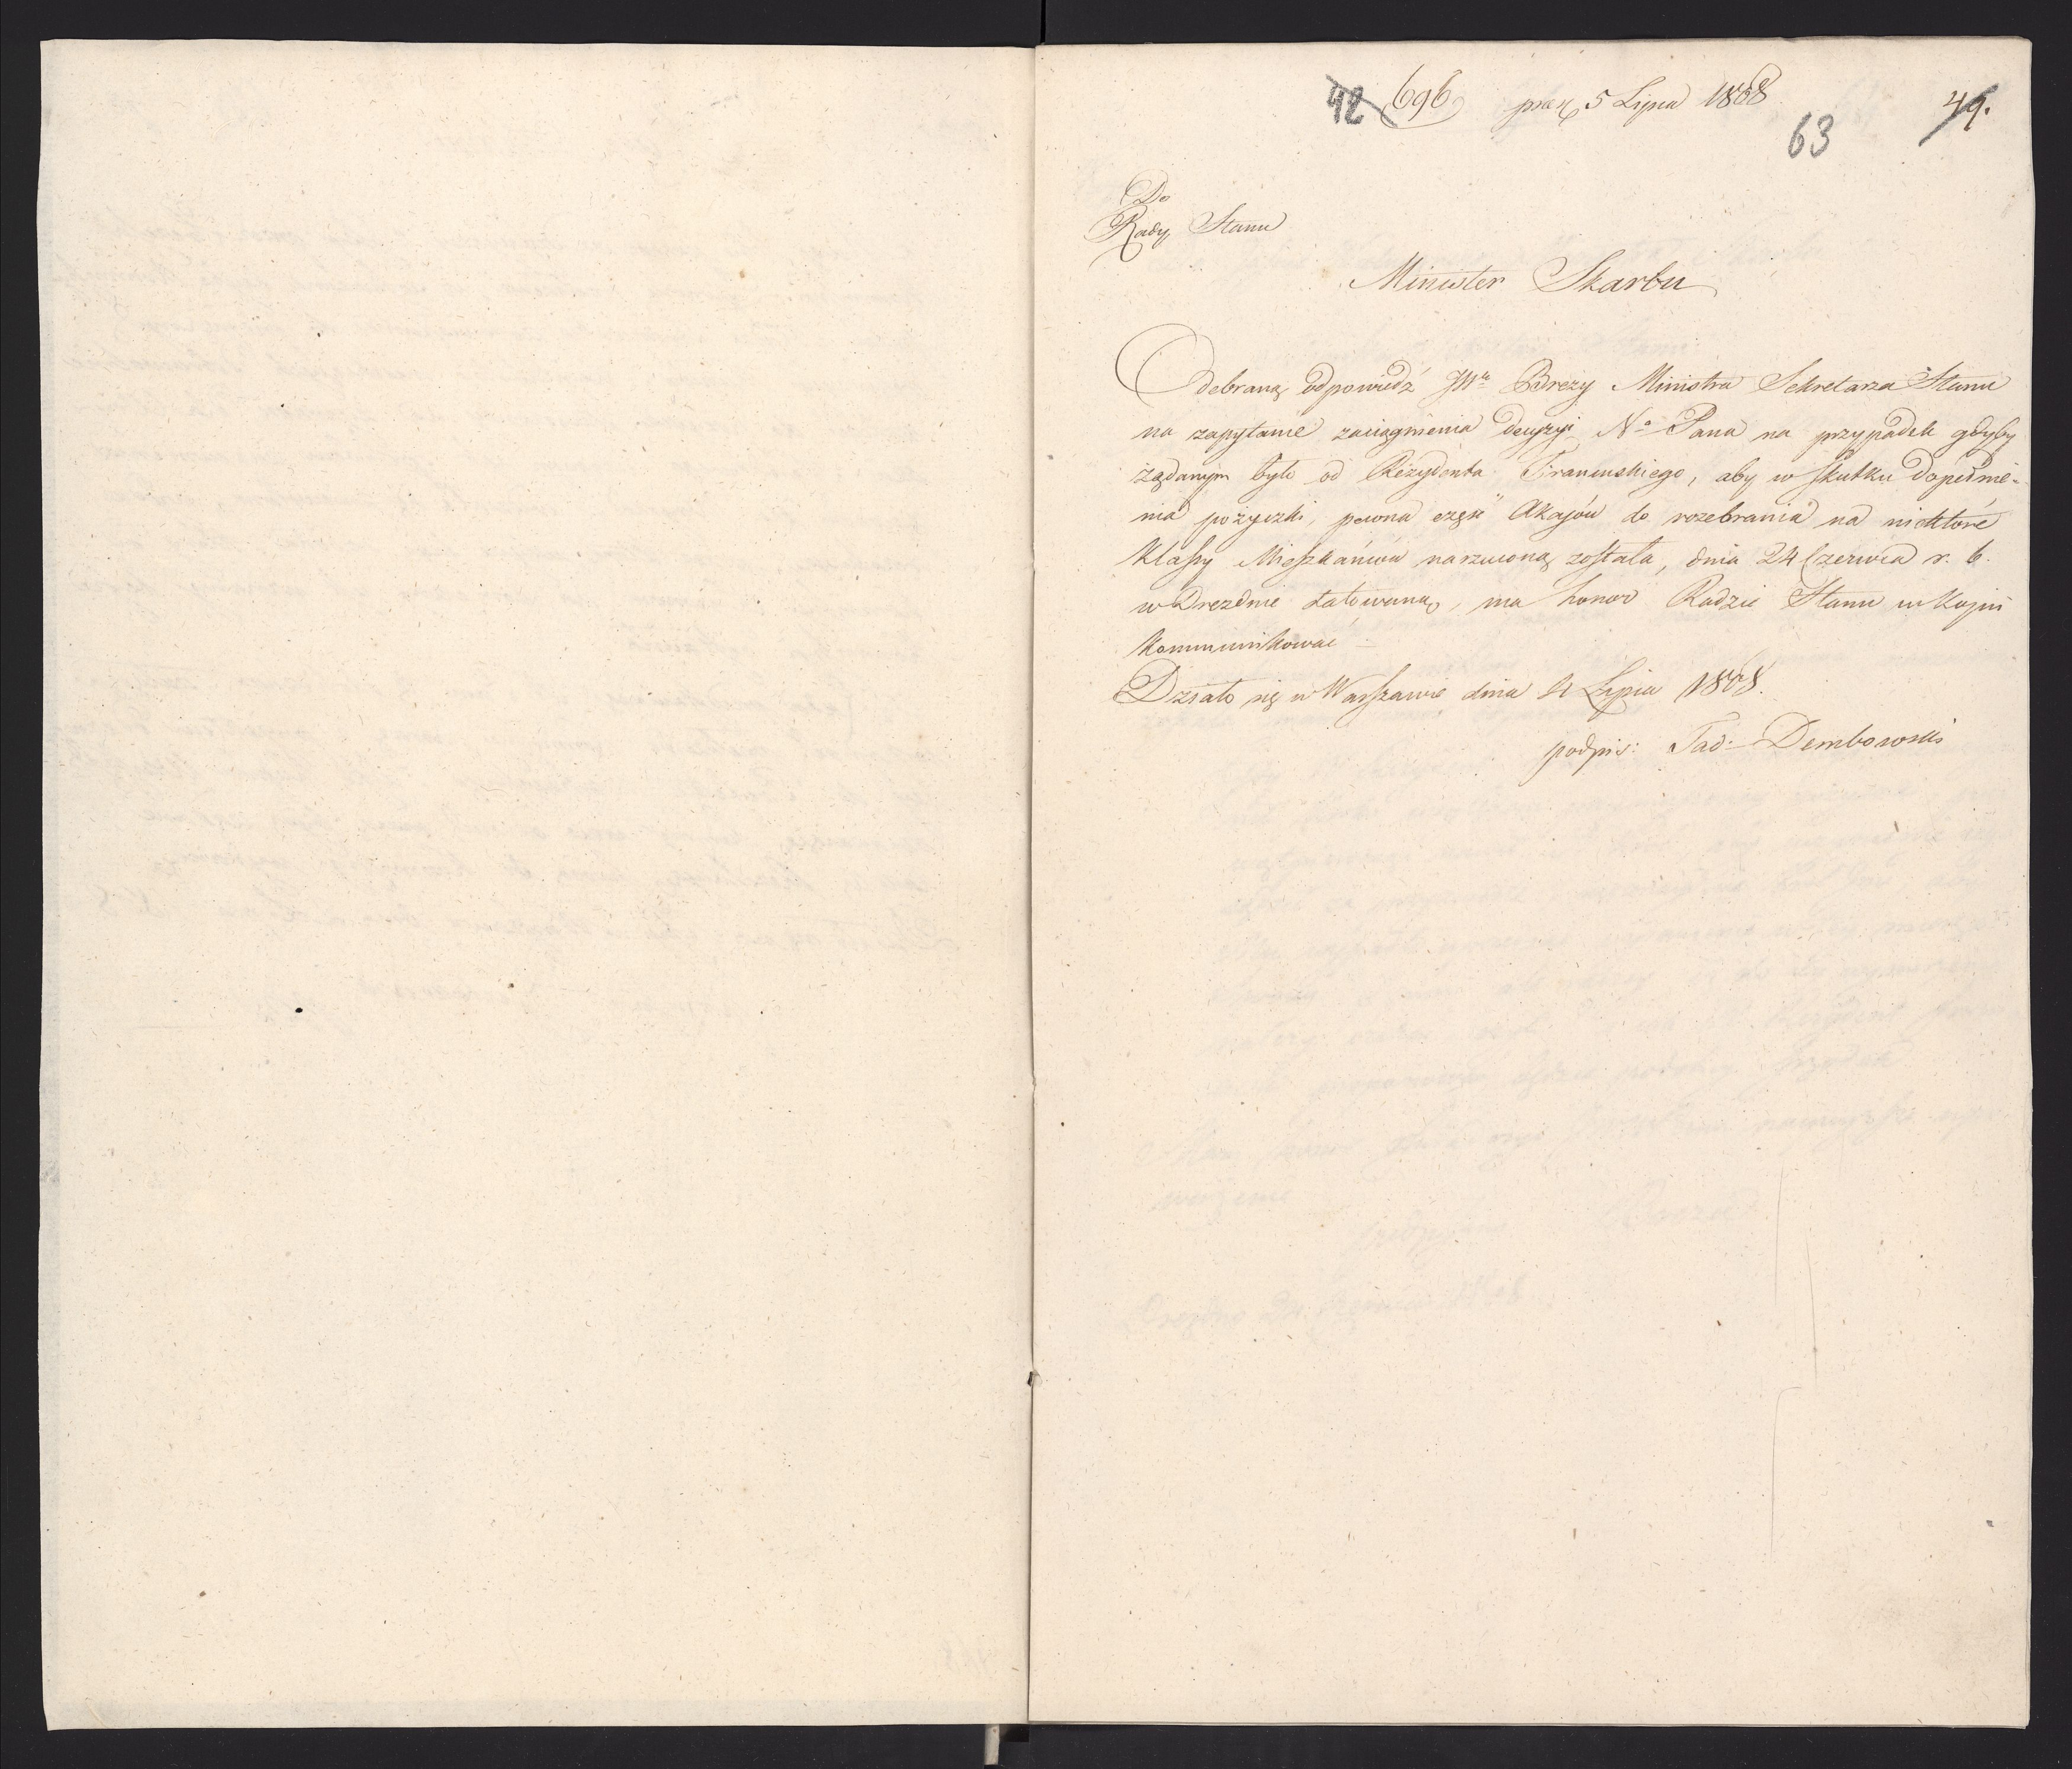 42 696 praez 5 Lipca 1808 49.
63
Do
Rady Stanu
Minister Skarbu
Odebraną odpowiedź JW° Brezy Ministra Sekretarza Stanu
na zapytanie zaciągnienia decyzyi N° Pana na przypadek gdyby
żądanym było od Rezydenta Francuskiego, aby w skutku dopełnie-
nia pożyczki, pewna część Akcyów do rozebrania na niektóre
Klassy Mieszkańców narzuconą została, dnia 24 Czerwca r. b.
w Dreznie datowaną, ma honor Radzie Stanu w Kopii
kommunikować –
Działo się w Warszawie dnia 4 Lipca 1808.
podpis: Tad: Dembowski